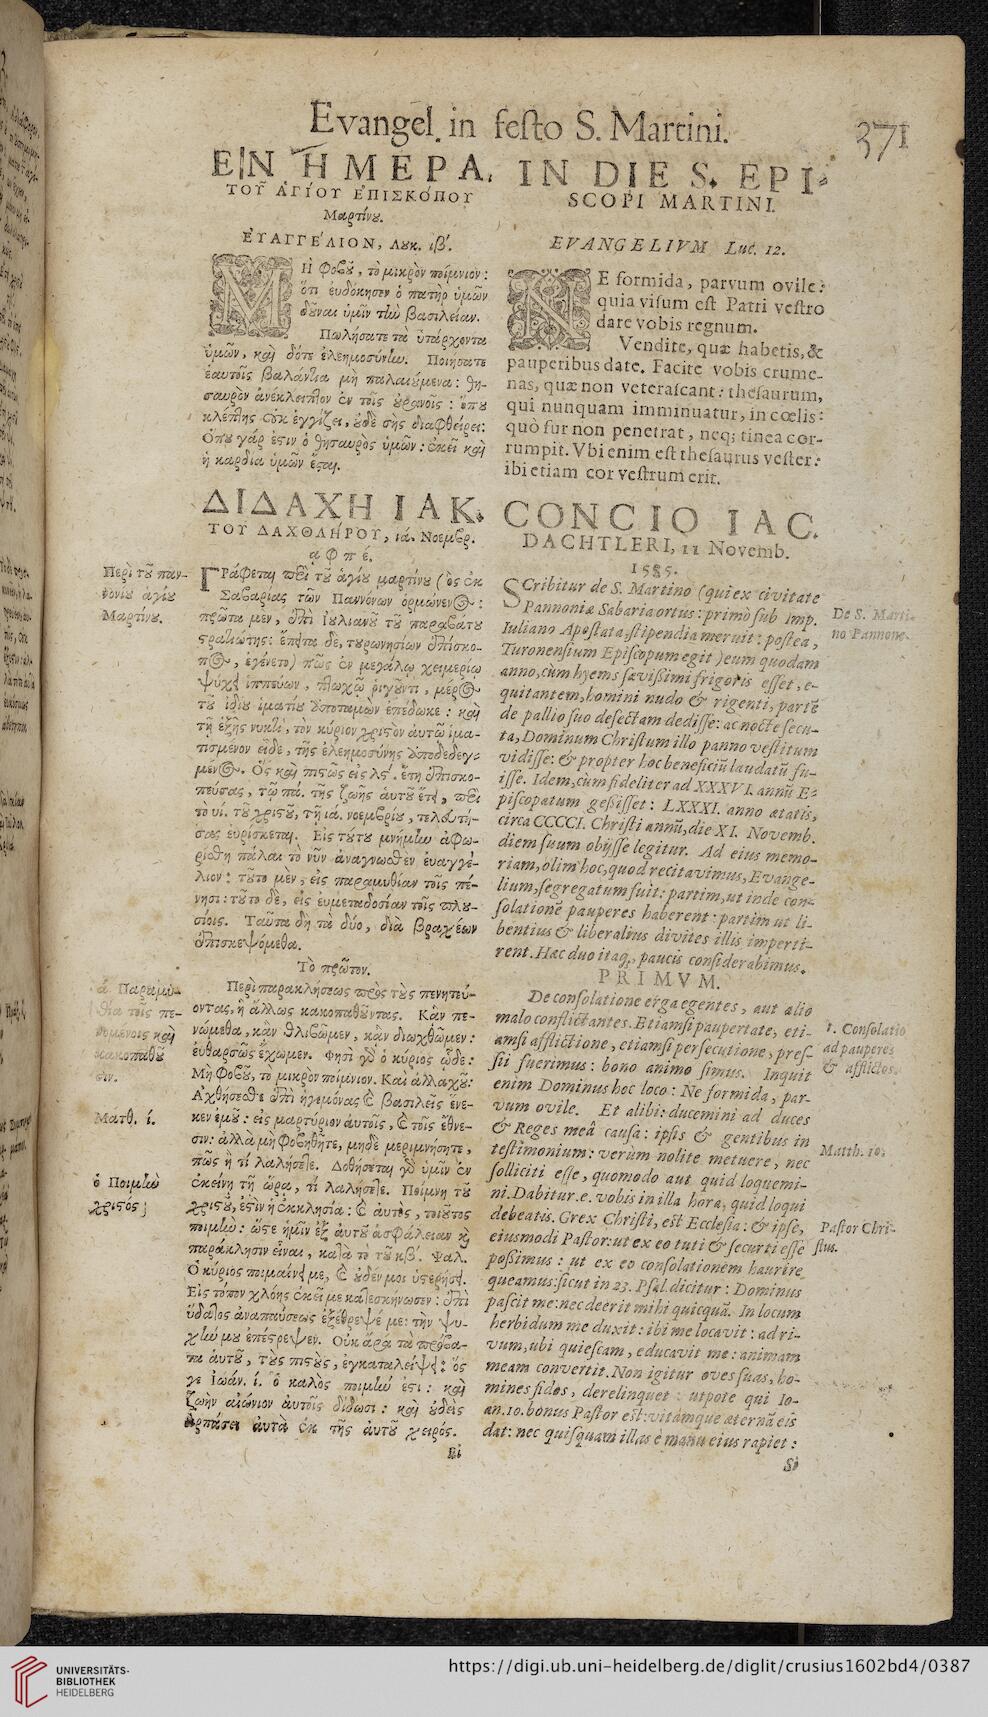 Evangel. in festo S. Martini.
371
ΕΝ ἩΜΕΡΑ
ΤΟΥ͂ ἉΓΙΟΥ ἘΠΙΣΚΌΠΟΥ
Μαρτίνου.
ἘΥΑΓΓΈΛΙΟΝ, Λουκ. ιβʹ.
ΜΗ φοβοῦ, τὸ μικρὸν ποίμνιον:
ὅτι ἐυδόκησεν ὁ πατὴρ ὑμῶν
δοῦναι ὑμῖν τὴν βασιλείαν.
Πωλήσατε τὰ ὑπάρχοντα
ὑμῶν, καὶ δότε ἐλεημοσύνην. Ποιήσατε
ἑαυτοῖς βαλάντια μὴ παλαιούμενα: θη-
σαυρὸν ἀνέκλειπτον ἐν τοῖς οὐρανοῖς: ὅπου
κλέπτης οὐκ ἐγγίζει, οὐδὲ σὴς διαφθείρει:
Ὅπου γάρ ἐστιν ὁ θησαυρὸς ὑμῶν: ἐκεῖ καὶ
ἡ καρδία ὑμῶν ἔσται.
ΔΙΔΑΧΗ ΙΑΚ.
ΤΟΥ ΔΑΧΘΛΗΡΟΥ, ιά. Νοεμβρ.
α φ π έ.
Περὶ τοῦ παν-
νονίου ἁγίου
Μαρτίνου.
ΓΡάφεται περὶ τοῦ ἁγίου μαρτίνου (ὃς ἐκ
Σαβαρίας τῶν Παννόνων ὁρμώμενος:
πρῶτα μεν, ἐπὶ Ἰουλιανοῦ τοῦ παραβάτου
στρατιώτης: ἔπειτα δε, τουρωνησίων ἐπίσκο-
πος, ἐγένετο) πῶς ἐν μεγάλῳ χειμερίῳ
ψύχει ἱππεύων, πτωχῷ ῥιγοῦντι, μέρος
τοῦ ἰδίου ἱματίου ἀποταμὼν ἐπέδωκε: καὶ
τῇ ἑξῆς νυκτὶ, τὸν κύριον χριστὸν ἀυτῷ ἱμα-
τισμένον εἶδε, τῆς ἐλεημοσύνης ἀποδεδεγ-
μένος. Ὃς καὶ πιστῶς εἰς λϛʹ. ἔτη ἐπισκο-
πεύσας, τῷ πά. τῆς ζωῆς ἀυτοῦ ἔτει, περὶ
τὸ υί. τοῦ χριστοῦ, τῇ ιά. νοεμβρίου, τελευτή-
σας ἑυρίσκεται. Εἰς τούτου μνήμην ἀφω-
ρίσθη πάλαι τὸ νῦν ἀναγνωσθὲν ἐυαγγέ-
λιον: τοῦτο μὲν, εἰς παραμυθίαν τοῖς πέ-
νησι: τοῦτο δὲ, εἰς ἐυμεταδοσίαν τοῖς πλου-
σίοις. Ταῦτα δὴ τὰ δύο, διὰ βραχέων
ἐπισκεψόμεθα.
Τὸ πρῶτον.
ά Παραμυ-
θία τοῖς πε-
νομένοις καὶ
κακοπαθοῦ
σιν.
Περὶ παρακλήσεως πρὸς τοὺς πενητεύ-
οντας, ἢ ἄλλως κακοπαθοῦντας. Κἂν πε-
νώμεθα, κἂν θλιβῶμεν, κἂν διωχθῶμεν:
ἐυθαρσῶς ἔχωμεν. Φησὶ γὰρ ὁ κύριος ὧδε:
Μὴ φοβοῦ, τὸ μικρὸν ποίμνιον. Καὶ ἀλλαχοῦ:
Ἀχθήσεσθε ἐπὶ ἡγεμόνας καὶ βασιλεῖς ἕνε-
κεν ἐμοῦ: εἰς μαρτύριον ἀυτοῖς, καὶ τοῖς ἔθνε-
σιν: ἀλλὰ μὴ φοβηθῆτε, μηδὲ μεριμνήσητε,
πῶς ἢ τί λαλήσετε. Δοθήσεται γὰρ ὑμῖν ἐν
ἐκείνῃ τῇ ὥρᾳ, τί λαλήσετε. Ποίμνη τοῦ
χριστοῦ, ἐστὶν ἡ ἐκκλησία: καὶ ἀυτὸς, τοιοῦτος
ποιμὴν: ὥστε ἡμῖν ἐξ ἀυτοῦ ἀσφάλειαν καὶ
παράκλησιν εἶναι, κατὰ τὸ τοῦ κβʹ. Ψαλ.
Ὁ κύριος ποιμαίνει με, καὶ οὐδέν μοι ὑστερήσει.
Εἰς τόπον χλόης ἐκεῖ με κατεσκήνωσεν: ἐπὶ
ὕδατος ἀναπαύσεως ἐξέθρεψέ με: τὴν ψυ-
χήν μου ἐπέστρεψεν. Οὐκ ἄρα τὰ πρόβα-
τα ἁυτοῦ, τοὺς πιστοὺς, ἐγκαταλείψει: ὅς
γε Ἰωάν. ί. ὁ καλὸς ποιμήν ἐστι: καὶ
ζωὴν αἰώνιον ἀυτοῖς δίδωσι: καὶ οὐδεὶς
ἁρπάσει ἀυτὰ ἐκ τῆς ἀυτοῦ χειρός.
Ματθ. ί.
ὁ Ποιμὴν
χριστός;
IN DIE S. EPI-
SCOPI MARTINI.
EVANGELIVM Luc. 12.
NE formida, parvum ovile:
quia visum est Patri vestro
dare vobis regnum.
Vendite, quæ habetis, &
pauperibus date. Facite vobis crume-
nas, quæ non veterascant: thesaurum,
qui nunquam imminuatur, in cœlis:
quò fur non penetrat, neq; tinea cor-
rumpit. Vbi enim est thesaurus vester:
ibi etiam cor vestrum erit.
CONCIO IAC.
DACHTLERI, 11 Novemb.
1585.
SCribitur de S. Martino (qui ex civitate
Pannoniæ Sabaria ortus: primò sub Imp.
Iuliano Apostata, stipendia meruit: postea,
Turonensium Episcopum egit) eum quodam
anno, cùm hyems sævissimi frigoris esset, e-
quitantem, homini nudo & rigenti, partē
de pallio suo desectam dedisse: ac nocte secu-
ta, Dominum Christum illo panno vestitum
vidisse: & propter hoc beneficiū laudatū fu-
isse. Idem, cùm fideliter ad XXXVI. annū E-
piscopatum gessisset: LXXXI. anno ætatis,
circa CCCCI. Christi annū, die XI. Novemb.
diem suum obijsse legitur. Ad eius memo-
riam, olim hoc, quod recitavimus, Evange-
lium, segregatum fuit: partim, ut inde con-
solationē pauperes haberent: partim ut li-
bentius & liberalius divites illis imperti-
rent. Hæc duo itaq;, paucis considerabimus.
PRIMVM.
De consolatione erga egentes, aut alio
malo conflictantes. Etiamsi paupertate, eti-
amsi afflictione, etiamsi persecutione, pres-
sii fuerimus: bono animo simus. Inquit
enim Dominus hoc loco: Ne formida, par-
vum ovile. Et alibi: ducemini ad duces
& Reges meâ causa: ipsis & gentibus in
testimonium: verum nolite metuere, nec
solliciti esse, quomodo aut quid loquemi-
ni. Dabitur.e. vobis in illa hora, quid loqui
debeatis. Grex Christi, est Ecclesia: & ipse,
eiusmodi Pastor: ut ex eo tuti & securi esse
possimus: ut ex eo consolationem haurire
queamus: sicut in 23. Psal. dicitur: Dominus
pascit me: nec deerit mihi quicquā. In locum
herbidum me duxit: ibi me locavit: ad ri-
vum, ubi quiescam, educavit me: animam
meam convertit. Non igitur oves suas, ho-
mines fidos, derelinquet: utpote qui Io-
an. 10. bonus Pastor est: vitamque æternā eis
dat: nec quisquam illas è manu eius rapiet:
Si
De S. Marti-
no Pannone.
1. Consolatio
ad pauperes
& afflictos.
Matth. 10.
Pastor Chri-
stus.
UNIVERSITÄTS-
BIBLIOTHEK
HEIDELBERG
https://digi.ub.uni-heidelberg.de/diglit/crusius1602bd4/0387